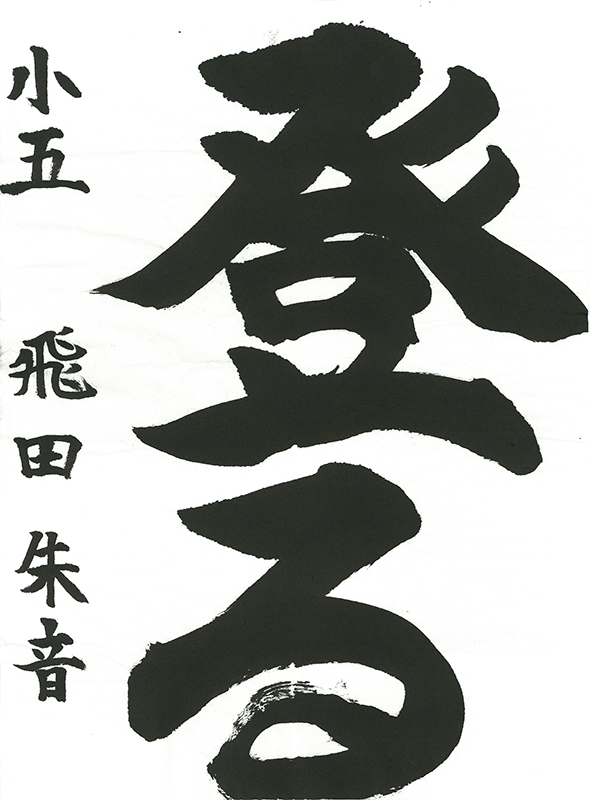 登る
小五 飛田 朱音